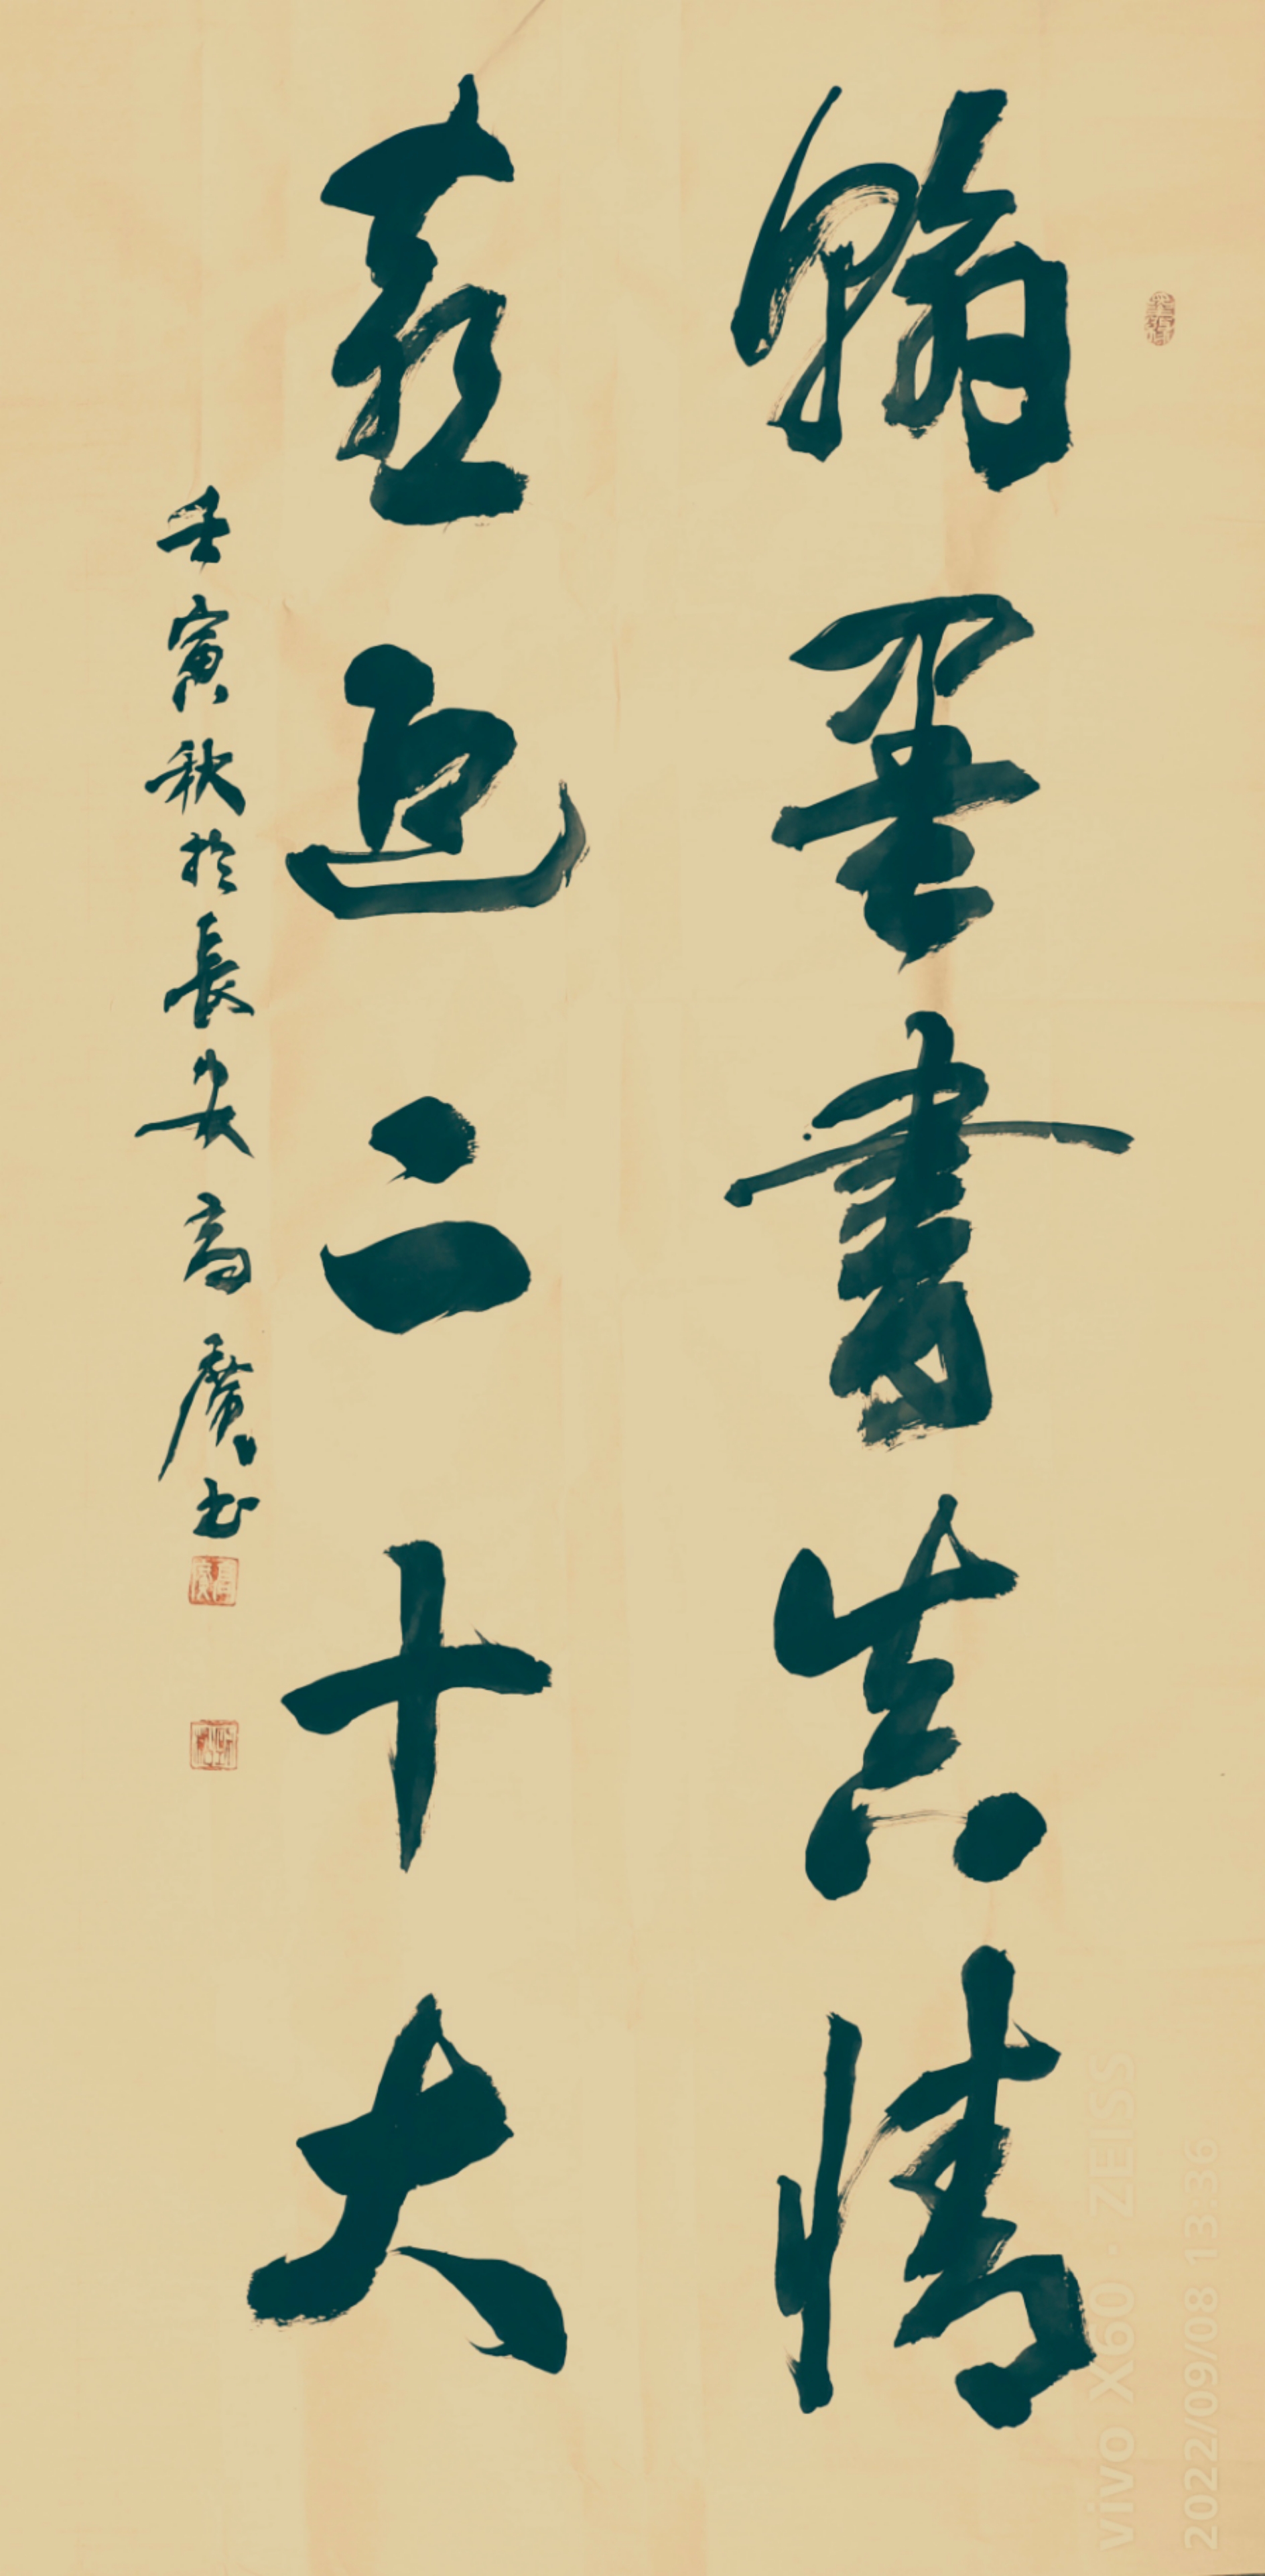 翰墨書真情
喜迎二十大
壬寅秋於長安高廣书
vivo X60 · ZEISS
2022/09/08 13:36